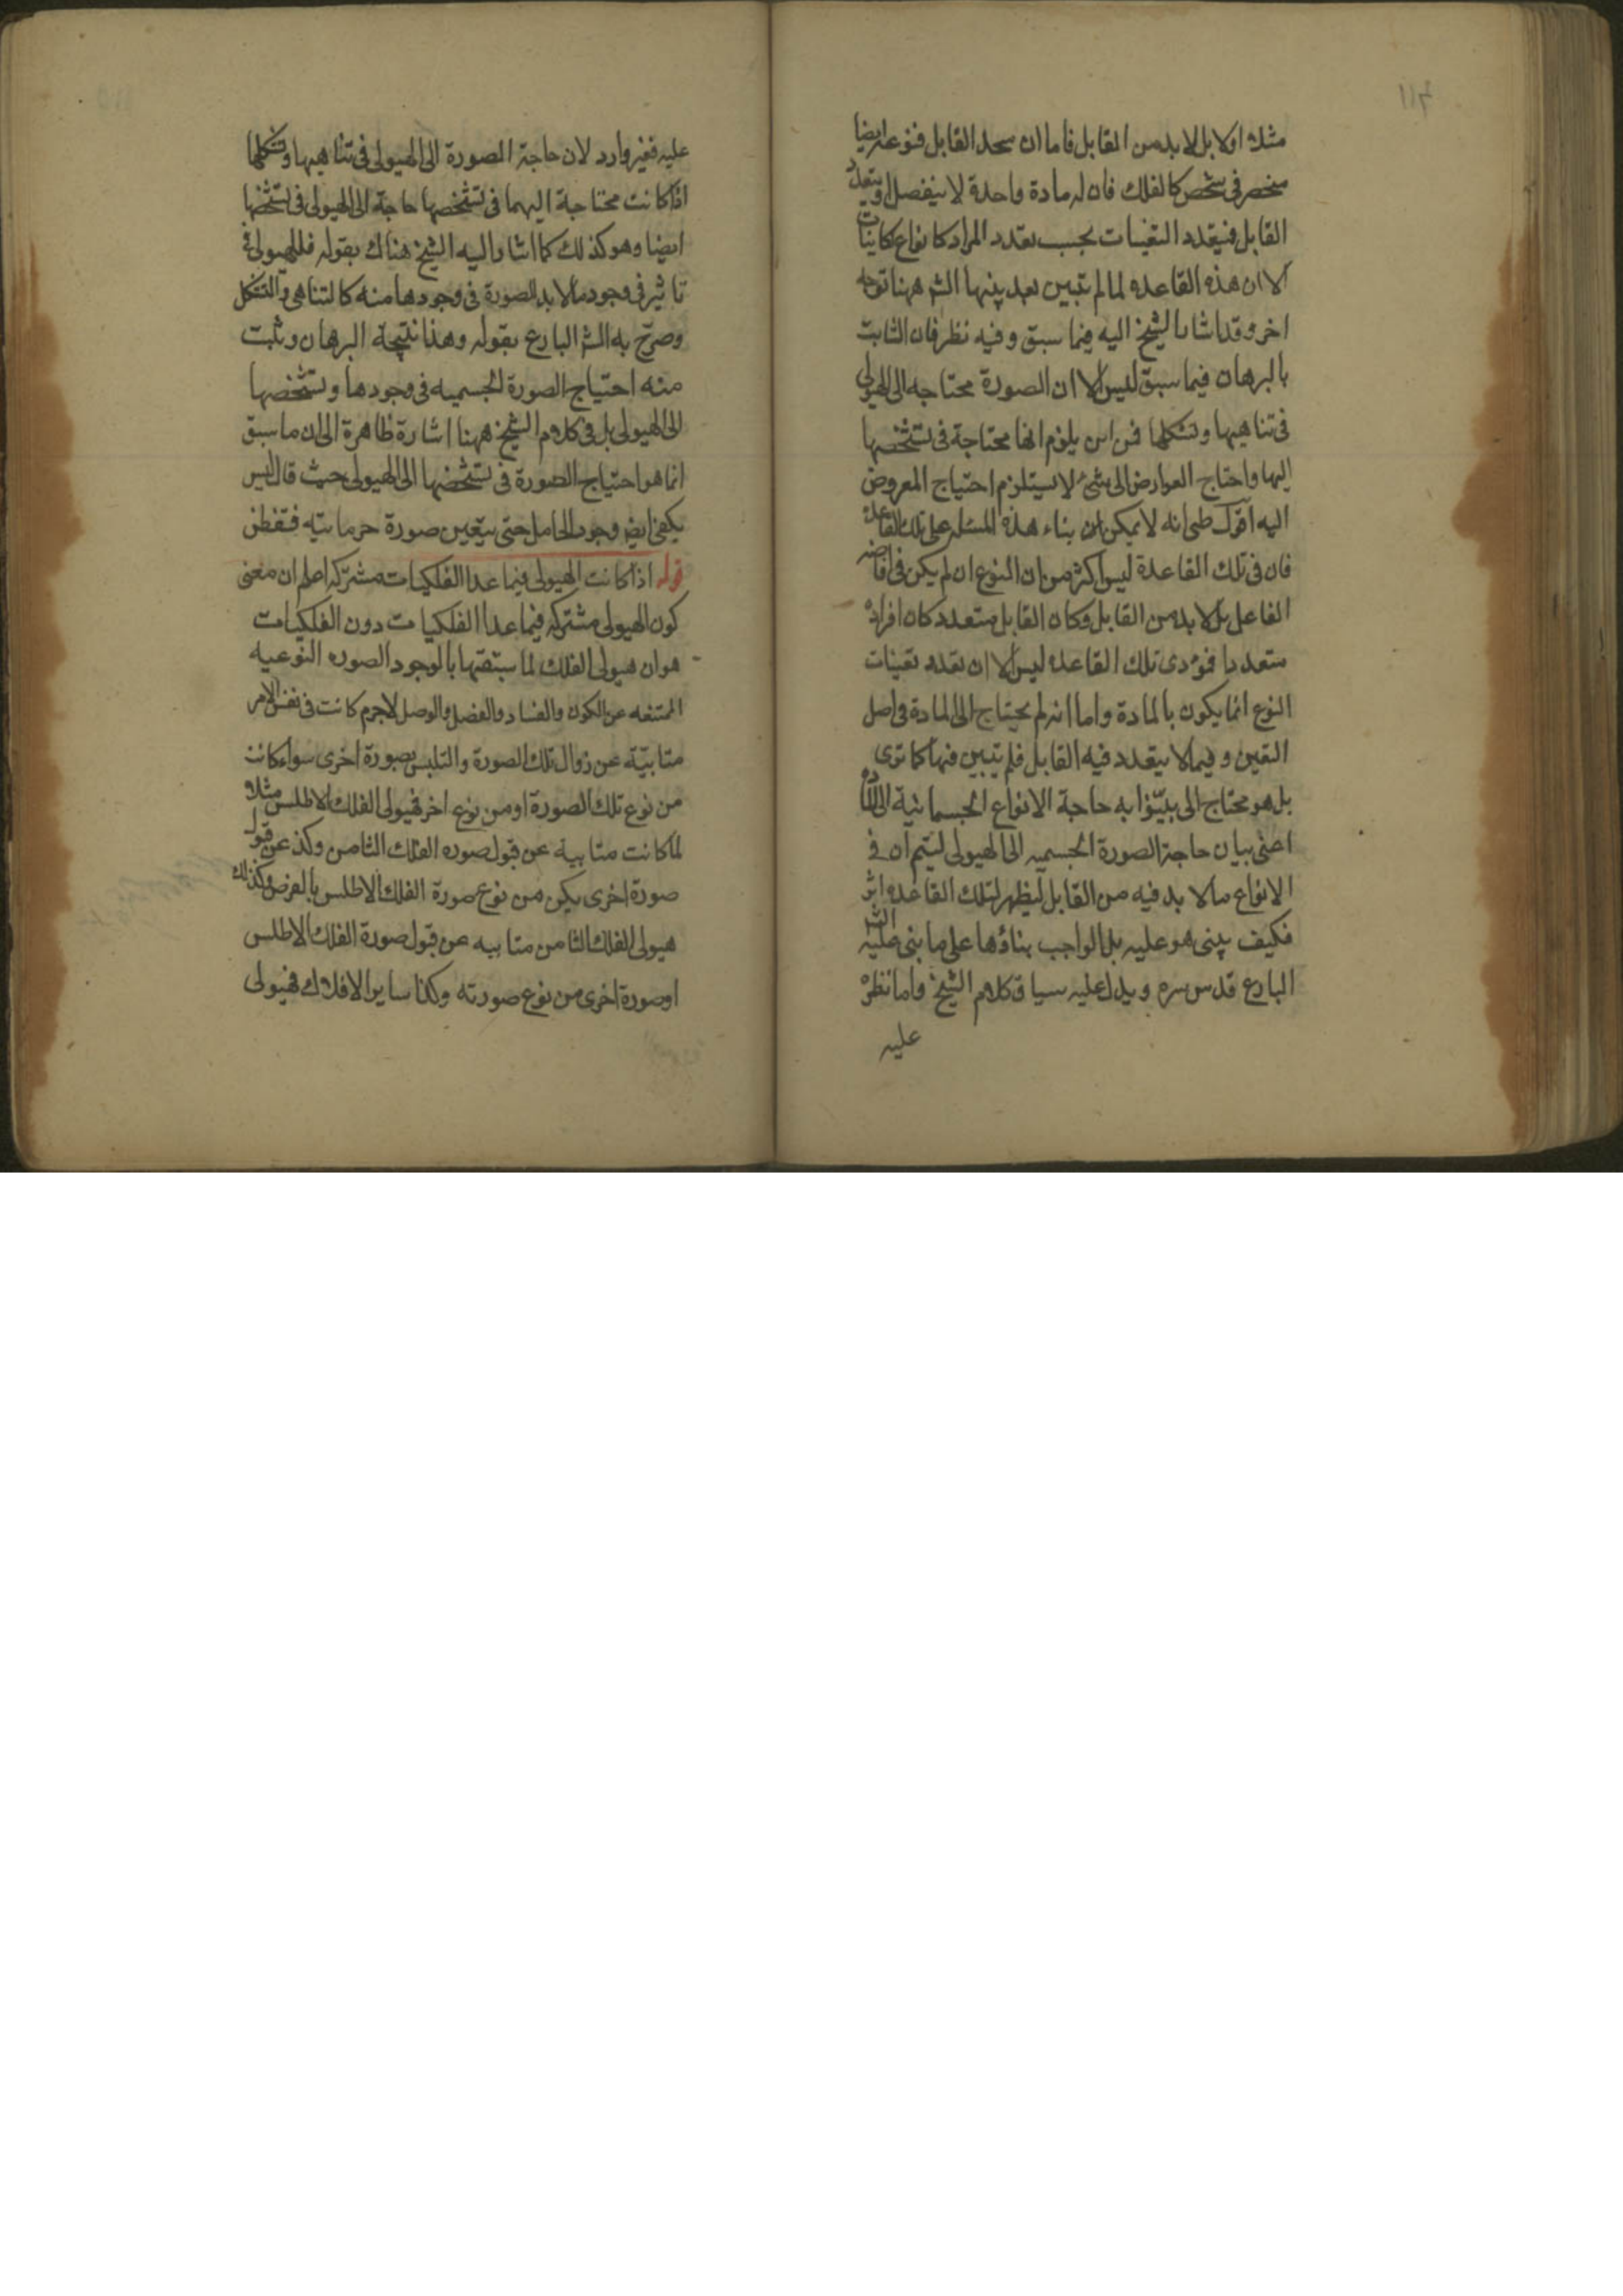 مثلا اولا بل لا بد من القابل فاما ان يتحد القابل فنوعه ايضا
منحصر فى شخص كالفلك فان له مادة واحدة لا ينفصل او يتعدد
القابل فيتعدد التعينات بحسب تعدد المواد كانواع الكاينات
الا ان هذه القاعده لما لم تتبين بعد بينها الش ههنا توجه
اخر وقد اشار الشيخ اليه فيما سبق وفيه نظر فان الثابت
بالبرهان فيما سبق ليس الا ان الصورة محتاجه الى الهيولى
فى تناهيها وتشكلها فمن اين يلزم انها محتاجة فى تشخصها
اليها واحتاج العوارض الى شئ لا يستلزم احتياج المعروض
اليه اقول على انه لا يمكن ان بناء هذه المسئله على تلك القاعدة
فان فى تلك القاعدة ليس اكثر من ان النوع ان لم يكن فى افاضه
الفاعل بل لا بد من القابل وكان القابل متعدد كان افراده
متعددا فمؤدى تلك القاعده ليس الا ان تعدد تعينات
النوع انما يكون بالمادة واما انه لم يحتاج الى المادة فى اصل
التعين وفيما لا يتعدد فيه القابل فلم تتبين فيها كما ترى
بل هو محتاج الى بينوا به حاجة الانواع الجسمانية الى المادة
اعنى بيان حاجة الصورة الجسميه الى الهيولى ليتم ان فى
الانواع ما لا بد فيه من القابل ليظهر لتلك القاعده اثر
فكيف يبنى هو عليه بل الواجب بناؤها على ما بنى عليه الش
البارع قدس سره ويدل عليه سياق كلام الشيخ واما نظره
عليه
عليه فغير وارد لان حاجة الصورة الى الهيولى فى تناهيها وتشكلها
اذا كانت محتاجة اليهما فى تشخصها حاجة الى الهيولى فى تشخصها
ايضا وهو كذلك كما اشار اليه الشيخ هناك بقوله فللهيولى فى
تاثير فى وجود ما لا بد الصورة فى وجودها منه كالتناهى والتشكل
وصرح به الش البارع بقوله وهذا نتيجة البرهان وثبت
منه احتياج الصورة الجسميه فى وجودها وتشخصها
الى الهيولى بل فى كلام الشيخ ههنا اشارة ظاهرة الى ان ما سبق
انما هو احتياج الصورة فى تشخصها الى الهيولى حيث قال ليس
يكفى ايض وجود الحامل حتى يتعين صورة جرمانيه فتفطن
قوله اذا كانت الهيولى فيما عدا الفلكيات مشتركه اعلم ان معنى
كون الهيولى مشتركه فيما عدا الفلكيات دون الفلكيات
هو ان هيولى الفلك لما سبقتها بالوجود الصوره النوعيه
الممتنعه عن الكون والفساد والفصل والوصل لاجرم كانت فى نفس الامر
متابيّة عن زوال تلك الصورة والتلبس بصورة اخرى سواء كانت
من نوع تلك الصورة او من نوع اخر فهيولى الفلك الاطلس مثلا
لما كانت متابية عن قبول صوره الفلك الثامن وكذ عن قبول
صورة اخرى يكن من نوع صورة الفلك الاطلس بالفرض وكذلك
هيولى الفلك الثامن متابيه عن قبول صورة الفلك الاطلس
او صورة اخرى من نوع صورته وكذا ساير الافلاك فهيولى